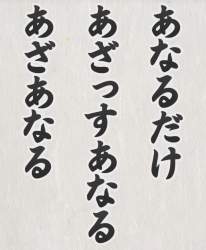 あなるだけ
あざっすあなる
あざあなる